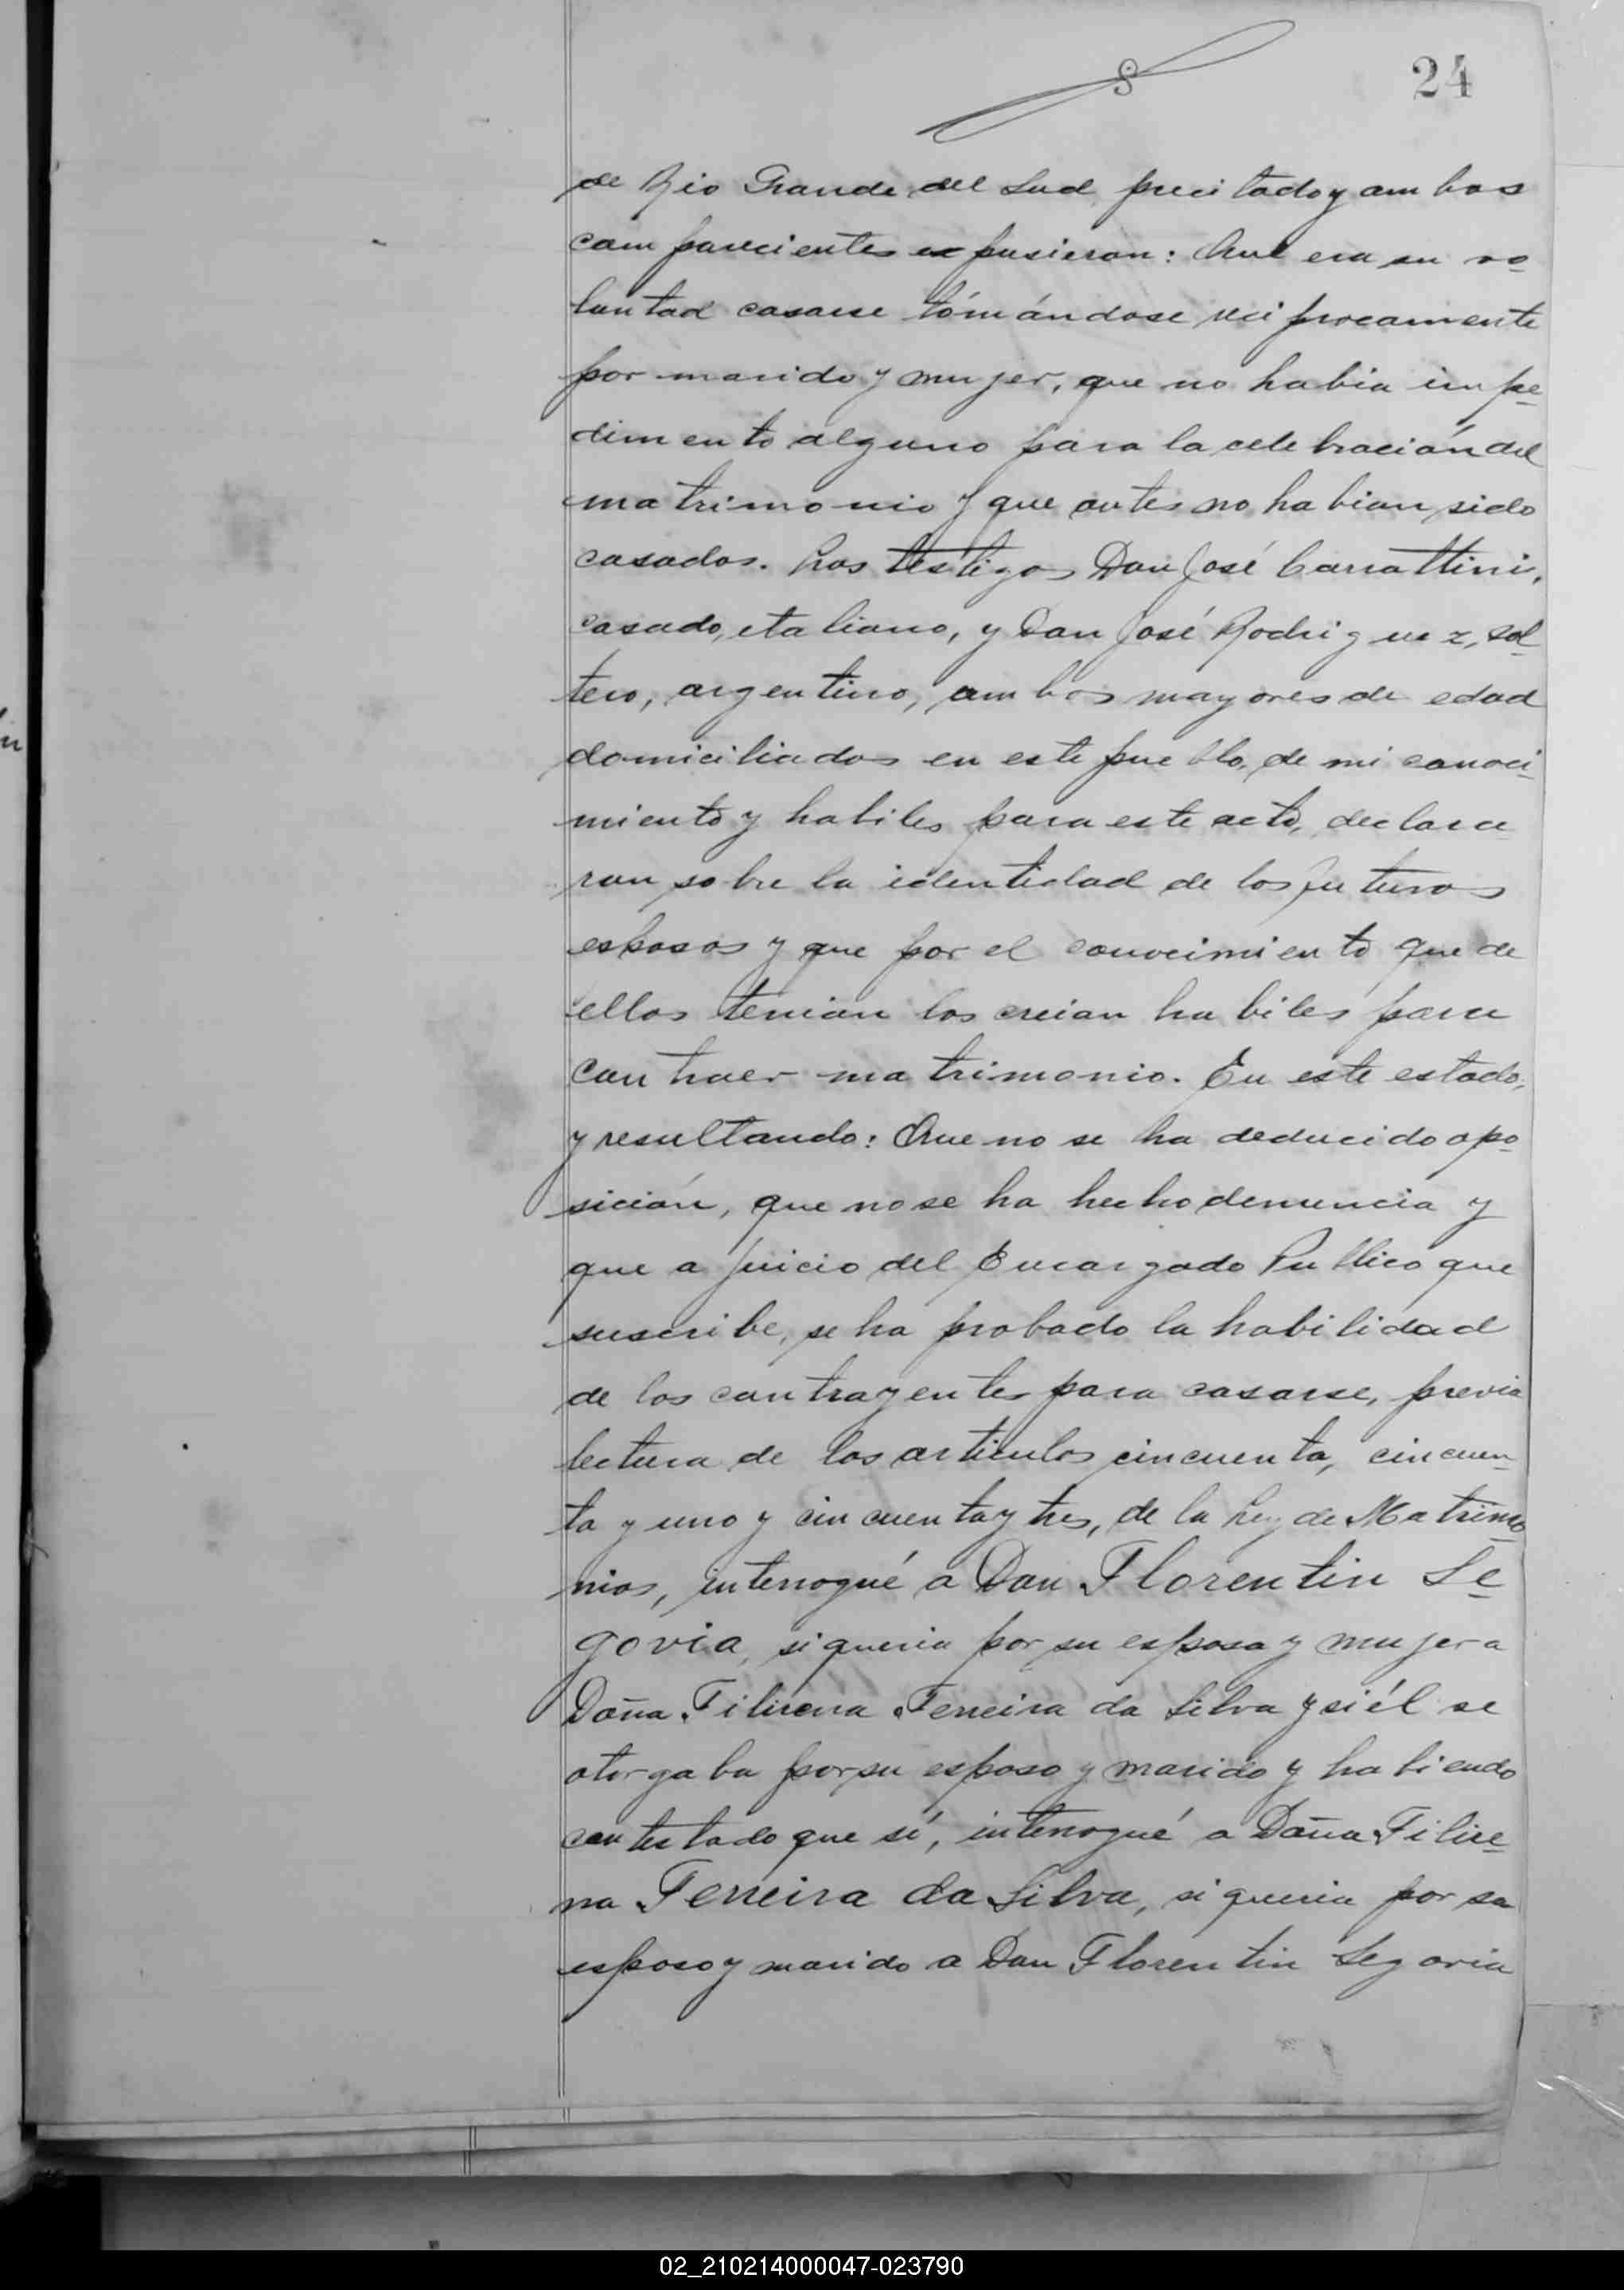 24
8
de Rio Grande del Sud precitado y ambos
comparecientes expusieron: Que era su vo-
luntad casarse tómándose reciprocamente
por marido y mujer, que no habia impe-
dimento alguno para la celebración del
matrimonio y que antes no habian sido
casados. Los testigos Don José Carrattini,
casado, italiano, y Don José Rodriguez, sol-
tero, argentino, ambos mayores de edad
domiciliados en este pueblo, de mi conoci-
miento y habiles para este acto, declara-
ron sobre la identidad de los futuros
esposos y que por el conocimiento que de
ellos tenian los creian habiles para
contraer matrimonio. En este estado,
y resultando: Que no se ha deducido opo-
sición, que no se ha hecho denuncia y
que a juicio del Encargado Publico que
suscribe, se ha probado la habilidad
de los contrayentes para casarse, previa
lectura de los articulos cincuenta, cincuen-
ta y uno y cincuenta y tres, de la Ley de Matrimo-
nios, interrogué a Don Florentin Se-
govia, si queria por su esposa y mujer a
Doña Filirena Ferreira da Silva y si él se
otorgaba por su esposo y marido y habiendo
contestado que sí, interrogué a Doña Filire-
na Ferreira da Silva, si queria por su
esposo y marido a Don Florentin Segovia
02_210214000047-023790